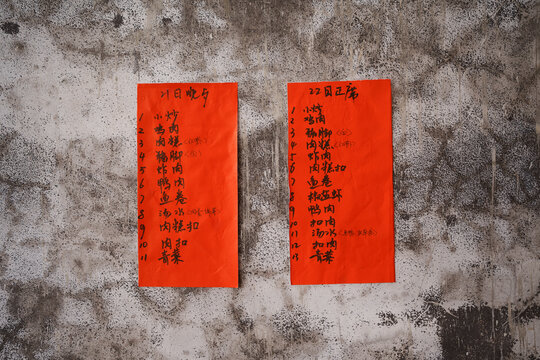 21日晚方
1 小炒
2 鸡肉
3 肉糕
4 猪脚
5 炸肉
6 鸭肉
7 鱼卷
8 汤水
9 肉糕扣
10 肉扣
11 青菜
22日正席
1 小炒
2 鸡肉
3 猪脚
4 肉糕
5 炸肉
6 肉糕扣
7 鱼卷
8 椒盐虾
9 鸭肉
10 扣肉
11 汤水
12 扣肉
13 青菜